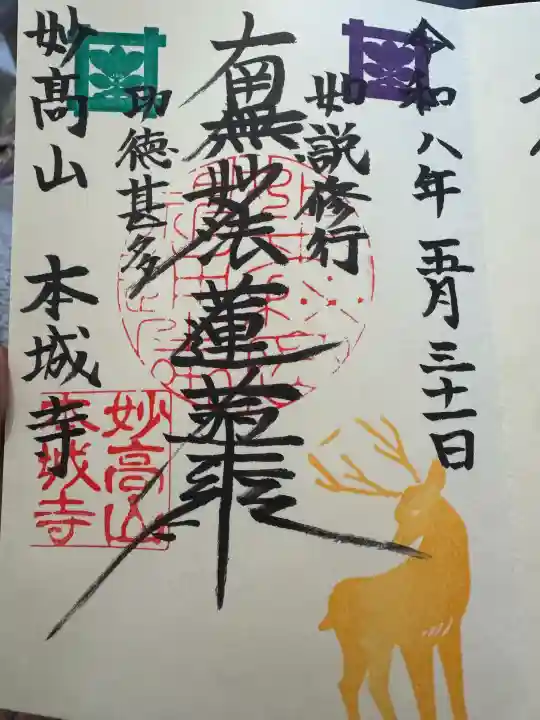 令和八年 五月 三十一日
如説修行
南無妙法蓮華経
功徳甚多
妙髙山 本城寺
妙高山
本城寺